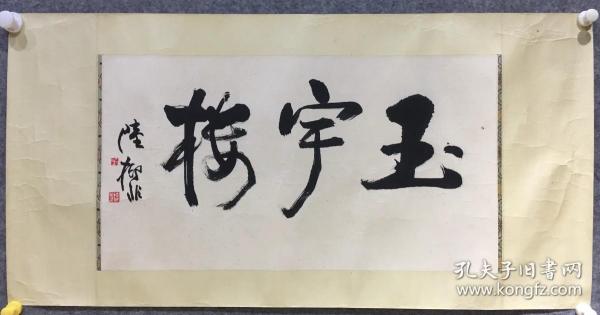 玉宇楼
陸抑非
孔夫子旧书网
www.kongfz.com